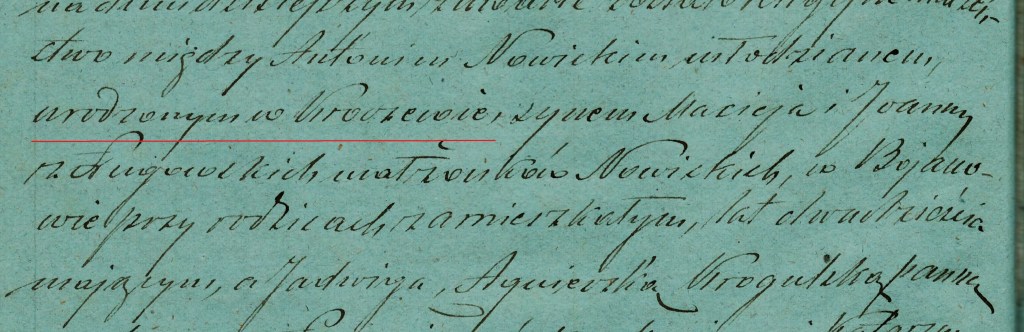 na dniu dzisiejszym, zawarte zostało religijne małżeń-
stwo między Antonim Nowickim młodzianem,
urodzonym w Kroczewie, synem Macieja i Joanny
z Ługowskich małżonków Nowickich, w Bojano-
wie przy rodzicach zamieszkałym, lat dwadzieścia
mającym, a Jadwigą, Agnieszką Krogulską panną